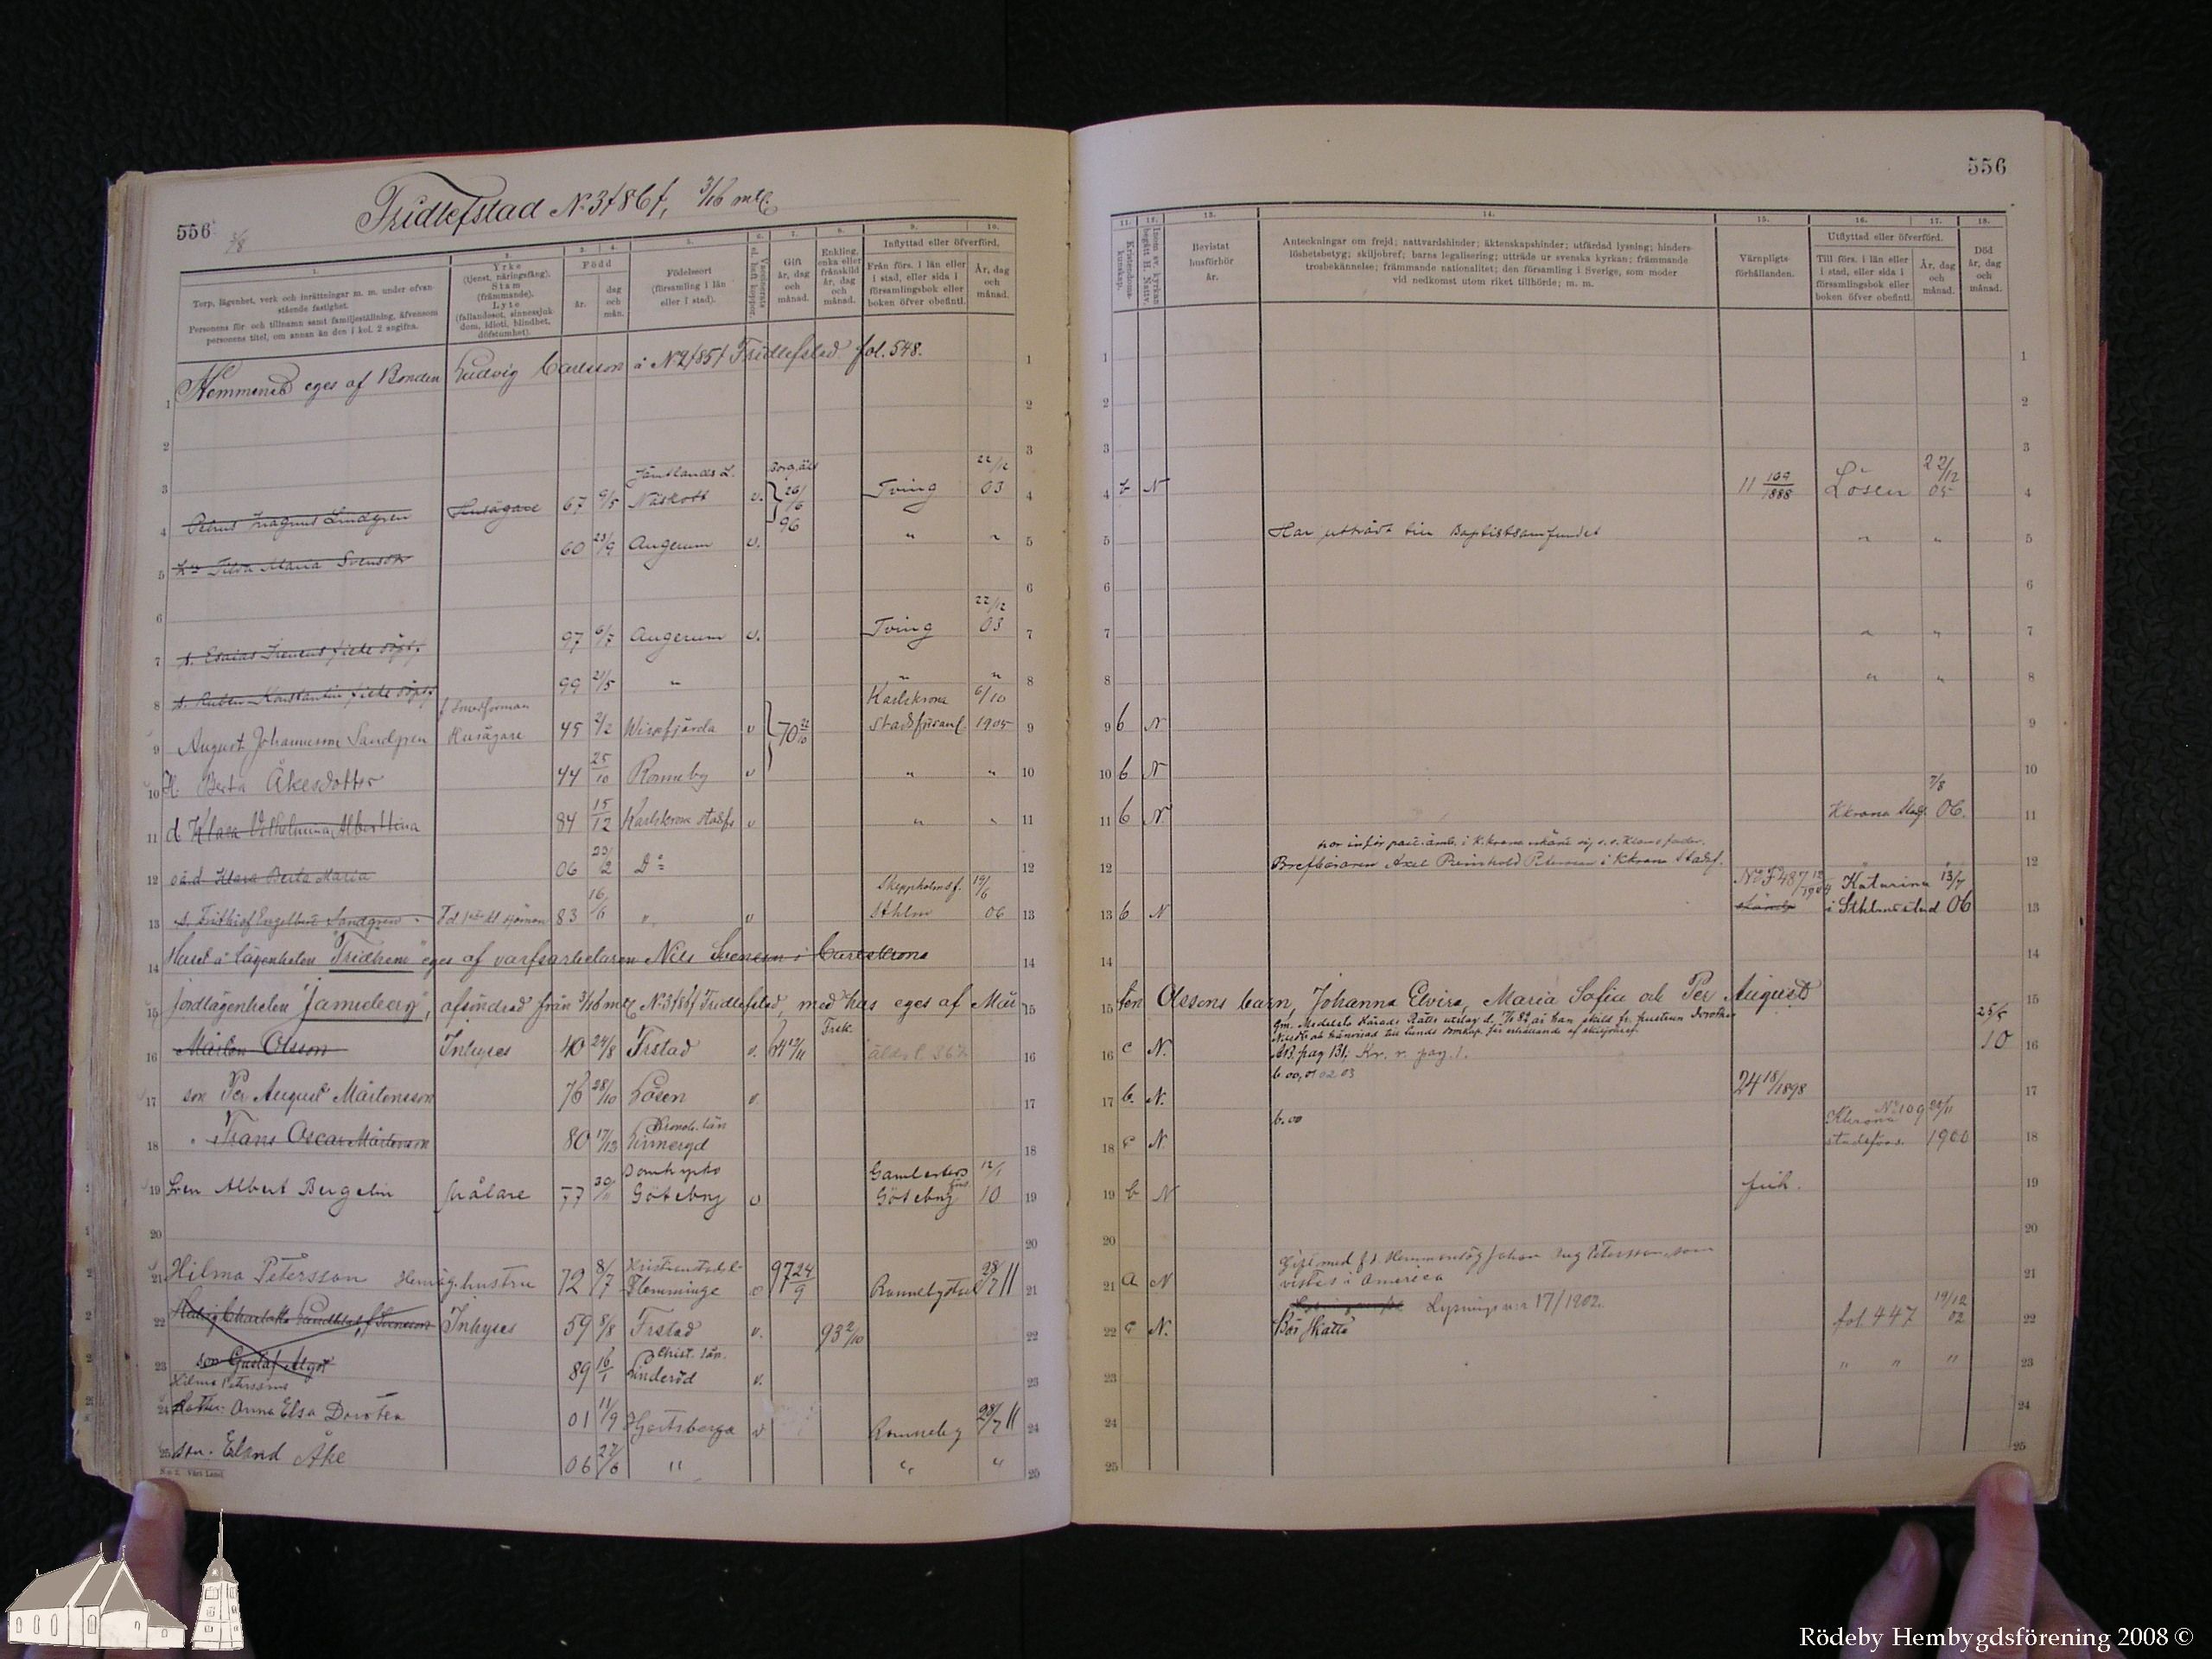 556
Fridlefstad No 3 & 6 f, 3/16 mtl.
1. Torp, lägenhet, verk och inrättningar m. m. under ofvanstående fastighet.
Personens för- och tillnamn samt familjeställning, äfvensom personens titel, om annan än den i kol. 2 angifna.
2. Yrke (tjenst, näringsfång). Stam (främmande). Lyte (fallandesot, sinnessjukdom, idioti, blindhet, döfstumhet).
Född
3. år.
4. dag och mån.
5. Födelseort (församling i län eller i stad).
7. Gift år, dag och månad.
8. Enkling, enka eller frånskild år, dag och månad.
Inflyttad eller öfverförd.
9. Från förs. i län eller i stad, eller sida i församlingsbok eller boken öfver obefintl.
10. År, dag och månad.
1 Hemmanet eges af Bonden Ludvig Carlsson å No 2 & 5 f Fridlefstad fol. 548. 1
2 2
3 3
4 Petrus Magnus Lindgren Husägare 67 9/5 Jämtlands L. Näskott v. 26/6 96 Tving 22/12 03 4
5 Maria Svenson 60 23/9 Augerum v. " " 5
6 6
7 97 6/7 Augerum v. Tving 22/12 03 7
8 s. Ruben Konstantin 99 21/5 " " " 8
9 August Johannesson Sandgren Husägare 45 2/2 v 70 22/10 Karlskrona Stadsförsaml. 6/10 1905 9
10 H. Berta Åkesdotter 44 25/10 Ronneby v " " 10
11 d Klara Vilhelmina Albertina 84 15/12 Karlskrona stadsfs v " " 11
12 Klara Berta Maria 06 23/2 Do 12
13 s. Frithiof Engelbert Sandgren 83 16/6 " v Skeppsholmsf. Sthlm 19/6 06 13
14 Huset å lägenheten "Fridhem" eges af varfsarbetaren Nils Svensson i Carlskrona 14
15 Jordlägenheten "Jamieberg", afsöndrad från 3/16 mtl No 3 & 6 f Fridlefstad, med hus eges af Mår 15
16 Mårten Olsson Inhyses 40 24/8 Frstad v. Frsk. 16
17 son Per August Mårtensson 76 28/10 Lösen v. 17
18 " Frans Oscar Mårtensson 80 17/12 Kronob. län 18
19 Sven Albert Bergelin Målare 77 Domkyrko Göteborg v Göteborg 12/1 10 19
20 20
21 Hilma Petersson Hemäg. hustru 72 8/7 Kristianstads l. Flemminge v 97 24/9 Ronneby 28/7 11 21
22 Hedvig Charlotta Inhyses 59 8/8 Frstad v. 93 2/10 22
23 son Gustaf Algot 89 16/1 Christ. län. Linderöd v. 23
Hilma Peterssons
24 dotter Anna Elsa Dorotea 01 11/9 Hjortsberga v Ronneby 28/7 11 24
25 son. Erland Åke 06 27/6 " " " 25
N:o 2. Vårt Land
556
11. Kristendomskunskap.
12.
13. Bevistat husförhör år.
14. Anteckningar om frejd; nattvardshinder; äktenskapshinder; utfärdad lysning; hinderslöshetsbetyg; skiljobref; barns legalisering; utträde ur svenska kyrkan; främmande trosbekännelse; främmande nationalitet; den församling i Sverige, som moder vid nedkomst utom riket tillhörde; m. m.
15. Värnpligtsförhållanden.
Utflyttad eller öfverförd.
16. Till förs. i län eller i stad, eller sida i församlingsbok eller boken öfver obefintl.
17. År, dag och månad.
18. Död år, dag och månad.
1 1
2 2
3 3
4 b N 11 109/1888 Lösen 22/12 05 4
5 Har utträdt till Baptistsamfundet " " 5
6 6
7 " " 7
8 " " 8
9 b N 9
10 b N 10
11 b N Kkrona Stadsf. 7/8 06. 11
12 Brefbäraren Axel Reinhold Peterson i Kkrona Stadsf. " " 12
13 b N Katarina i Sthlms stad 13/7 06 13
14 14
15 ten Olssons barn, Johanna Elvira, Maria Sofia och Per August 15
16 c N. AB. pag 131; Kr. r. pag. 1. 25/5 10 16
17 b. N. b. 00, 01 02 03 24 18/1898 17
18 c N. b. 00 Kkrona stadsförs. No 109 1900 18
19 b N 19
20 20
21 a N Gift med f. d. Hemmansäg Johan Aug Petersson, som vistas i America 21
22 c N. Lysningen 17/1902. Bör skatta fol. 447 19/12 02 22
23 " " " 23
24 24
25 25
Rödeby Hembygdsförening 2008 ©